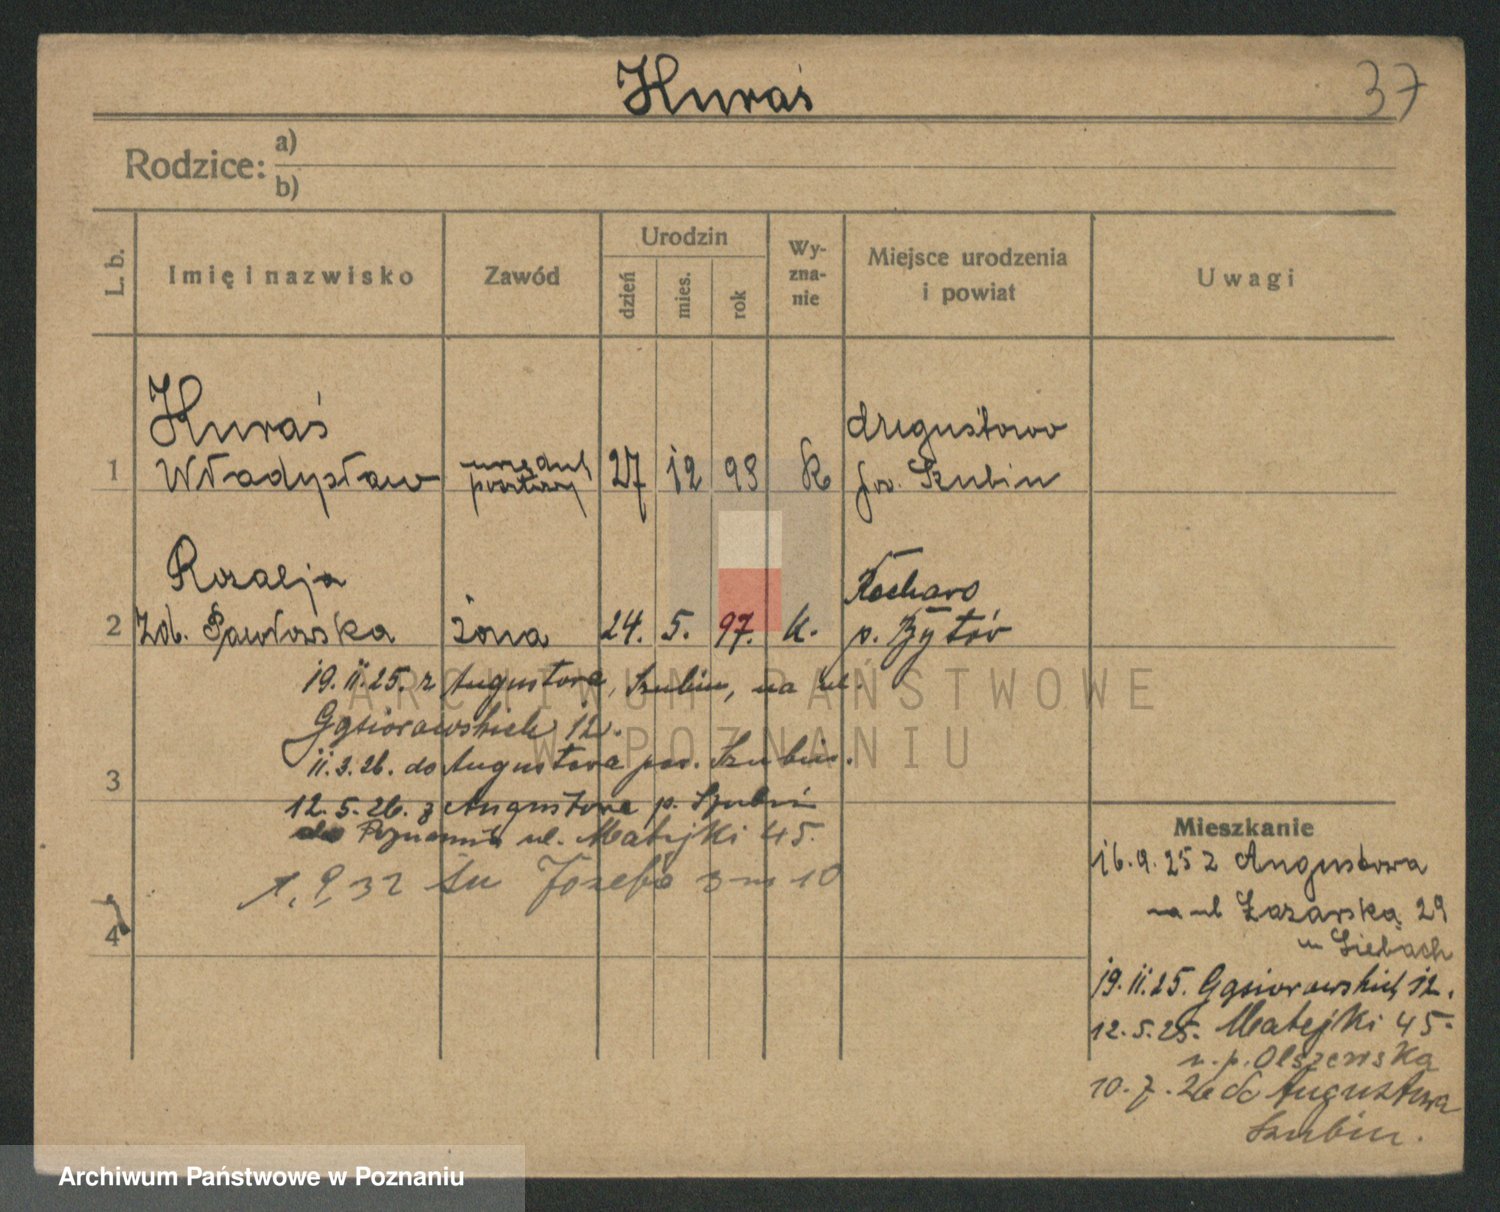 Kuraś
37
Rodzice: a)
b)
L. b.
Imię i nazwisko
Zawód
Urodzin
dzień
mies.
rok
Wy-
zna-
nie
Miejsce urodzenia
i powiat
Uwagi
Kuraś
1 Władysław
27 12 98 K
pow. Szubin
Rozalja
2 Pawłowska żona 24. 5. 97. k.
p. Bytów
19.11.25. z Augustowa, Szubin, na ul.
Gąsiorowskich 12.
11.3.26. do Augustowa pow. Szubin.
3
12.5.26. z Augustowa p. Szubin
do Poznania ul. Matejki 45.
1.9.32 Św Józefa 3 m 10
4
Mieszkanie
16.9.25 z Augustowa
na ul Łazarską 29
19.11.25. Gąsiorowskich 12.
12.5.25. Matejki 45.
u. p. Olszewska
10.7.26 do Augustowa
Szubin.
ARCHIWUM PAŃSTWOWE
W POZNANIU
Archiwum Państwowe w Poznaniu